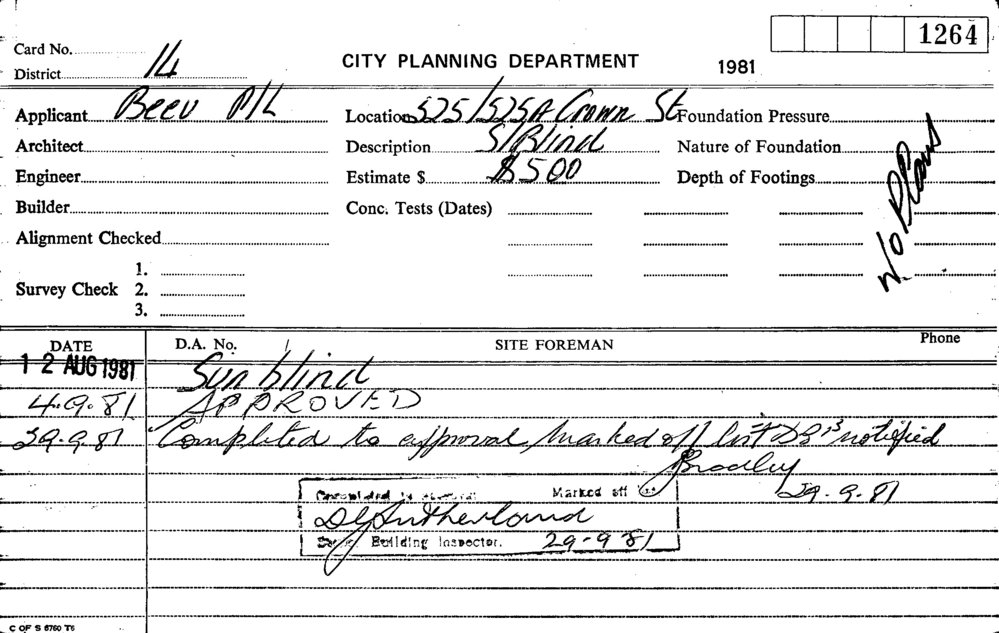 1264
Card No.
District 14
CITY PLANNING DEPARTMENT 1981
Applicant Beev P/L Location 525/525A Crown St Foundation Pressure
Architect Description S/Blind Nature of Foundation
Engineer Estimate $ $500 Depth of Footings
w/o Plans
Builder Conc. Tests (Dates)
Alignment Checked
1.
Survey Check 2.
3.
DATE D.A. No. SITE FOREMAN Phone
12 AUG 1981 Sun blind
4.9.81 APPROVED
29.9.81 Completed to approval, marked off list notified
Bradley
29.9.81
Marked off list
Sutherland
Building Inspector. 29-9-81
C OF S 6760 T6